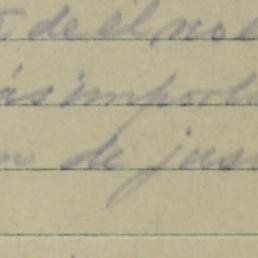 de él no
ás import
de jus